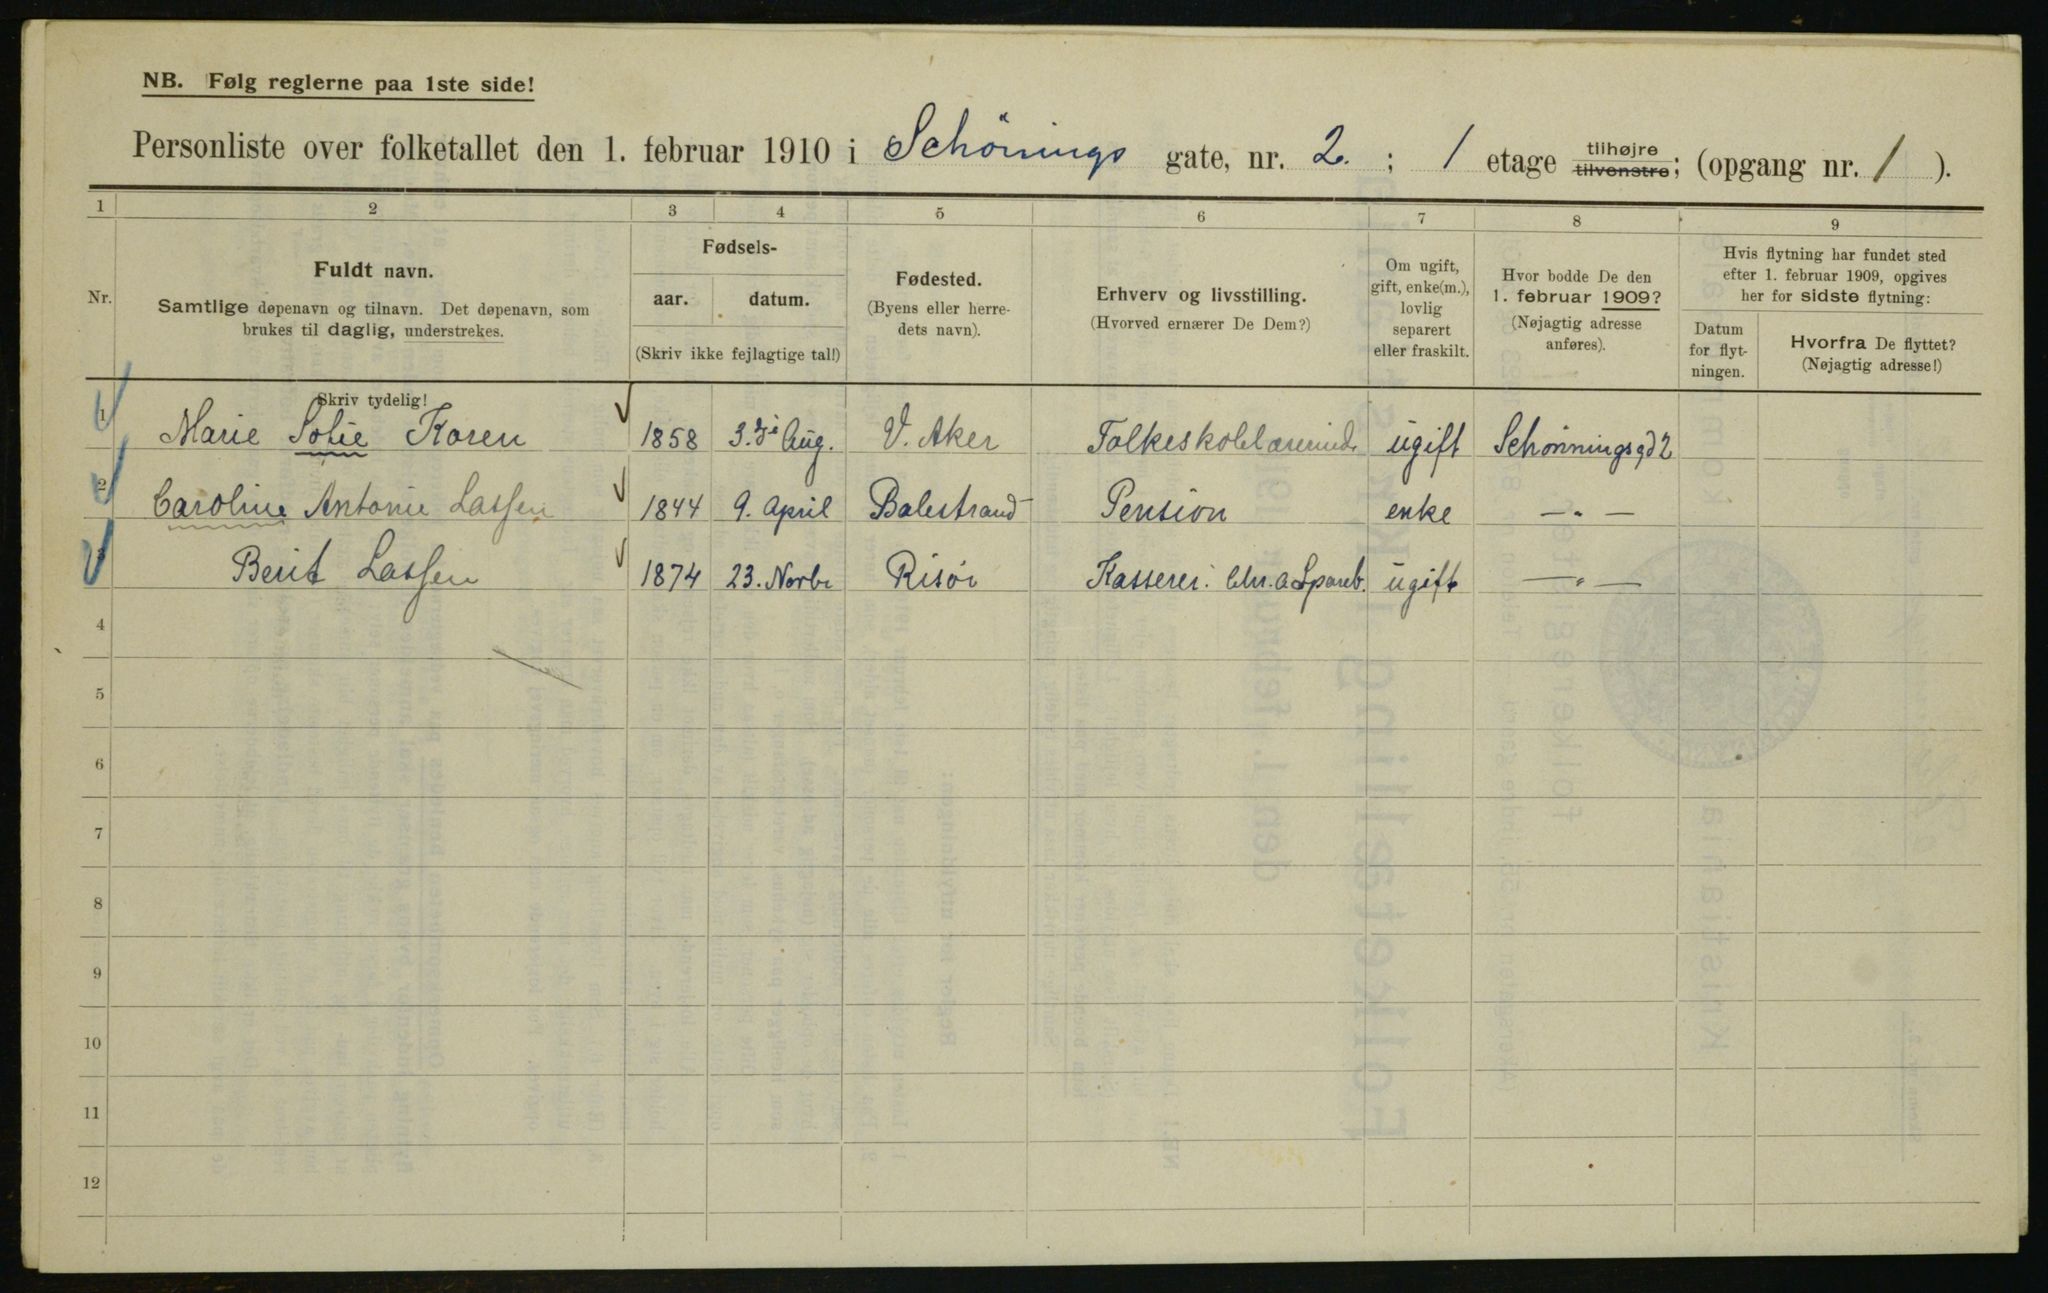 NB. Følg reglerne paa 1ste side!
Personliste over folketallet den 1. februar 1910 i Schönings gate, nr. 2. ; 1 etage tilhøjre tilvenstre; (opgang nr. 1 ).
1 2 3 4 5 6 7 8 9
Nr.
Fuldt navn.
Samtlige døpenavn og tilnavn. Det døpenavn, som
brukes til daglig, understrekes.
Fødsels-
aar. datum.
(Skriv ikke fejlagtige tal!)
Fødested.
(Byens eller herre-
dets navn).
Erhverv og livsstilling.
(Hvorved ernærer De Dem?)
Om ugift,
gift, enke(m.),
lovlig
separert
eller fraskilt.
Hvor bodde De den
1. februar 1909?
(Nøjagtig adresse
anføres).
Hvis flytning har fundet sted
efter 1. februar 1909, opgives
her for sidste flytning:
Datum
for flyt-
ningen.
Hvorfra De flyttet?
(Nøjagtig adresse!)
Skriv tydelig!
1 Marie Sofie Koren 1858 3.di Aug. V. Aker Folkeskolelærerinde ugift Schønningsgd 2
2 Caroline Antonie Lassen 1844 9. April Balestrand Pension enke — " —
3 Berit Lassen 1874 23. Novbr Risör Kasserer i Chr.a Spareb. ugift — " —
4
5
6
7
8
9
10
11
12